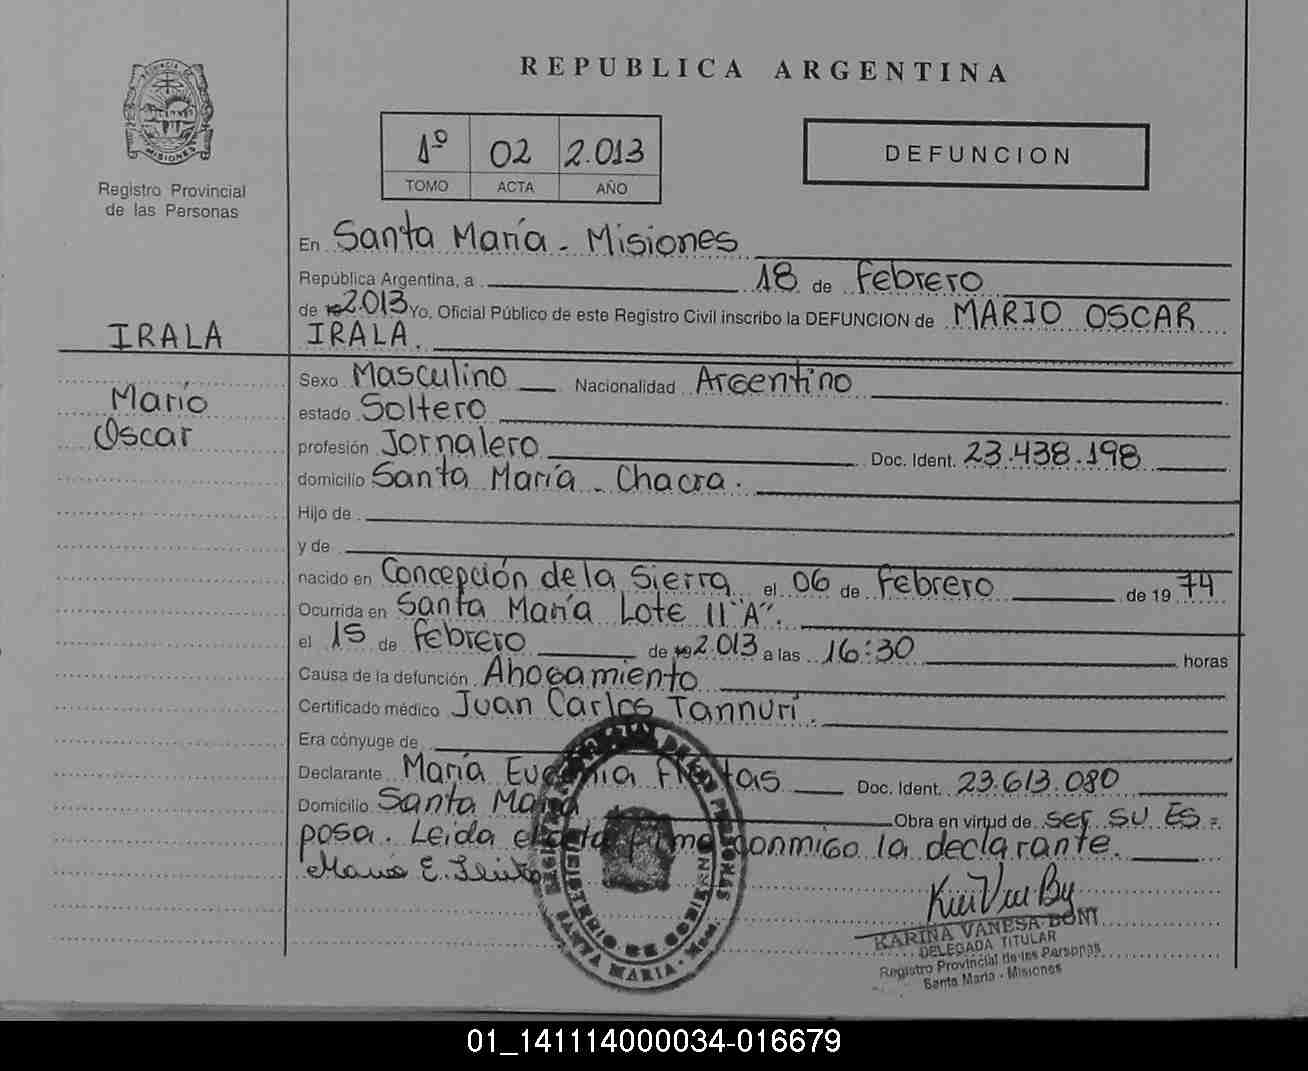 REPUBLICA ARGENTINA
PROVINCIA DE
MISIONES
Registro Provincial
de las Personas
1º 02 2.013
TOMO ACTA AÑO
DEFUNCION
En Santa María - Misiones
República Argentina, a 18 de Febrero
de 19 2.013 Yo, Oficial Público de este Registro Civil inscribo la DEFUNCION de MARIO OSCAR
IRALA
IRALA.
Sexo Masculino Nacionalidad Argentino
Mario
estado Soltero
Oscar
profesión Jornalero Doc. Ident. 23.438.198
domicilio Santa María - Chacra.
Hijo de
y de
nacido en Concepción de la Sierra el 06 de Febrero de 19 74
Ocurrida en Santa María Lote 11 "A".
el 15 de Febrero de 19 2.013 a las 16:30 horas
Causa de la defunción Ahogamiento
Certificado médico Juan Carlos Tannuri.
Era cónyuge de
Declarante María Eugenia Doc. Ident. 23.613.080
Domicilio Santa María Obra en virtud de ser su es=
posa. Leida el acta firma conmigo la declarante.
María E.
KARINA VANESA BONT
DELEGADA TITULAR
Registro Provincial de las Personas
Santa María - Misiones
MINISTERIO DE GOBIERNO
SANTA MARIA - Mnes.
01_141114000034-016679